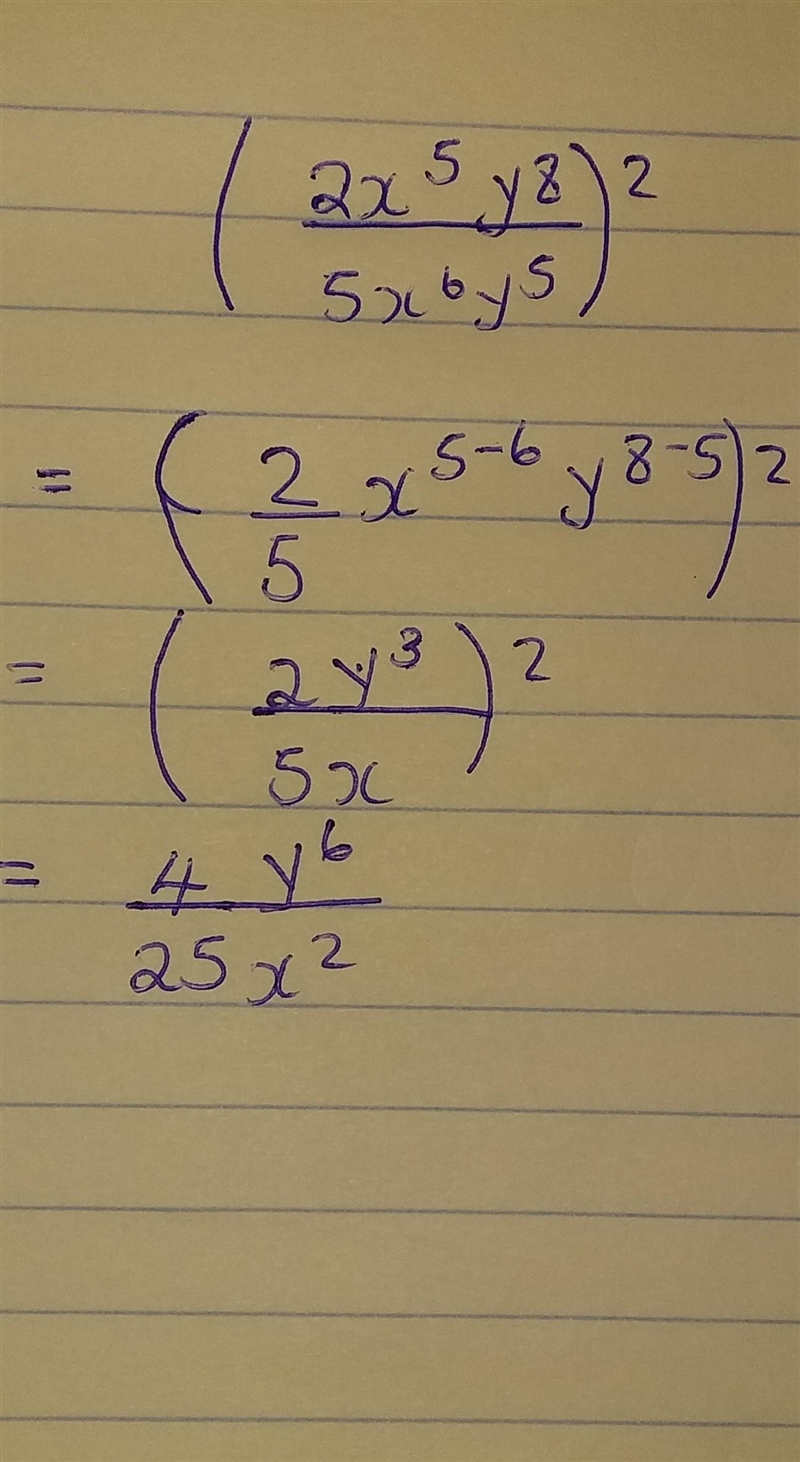 (2x⁵y⁸ / 5x⁶y⁵)²
= (2/5 x⁵⁻⁶ y⁸⁻⁵)²
= (2y³ / 5x)²
= 4y⁶ / 25x²